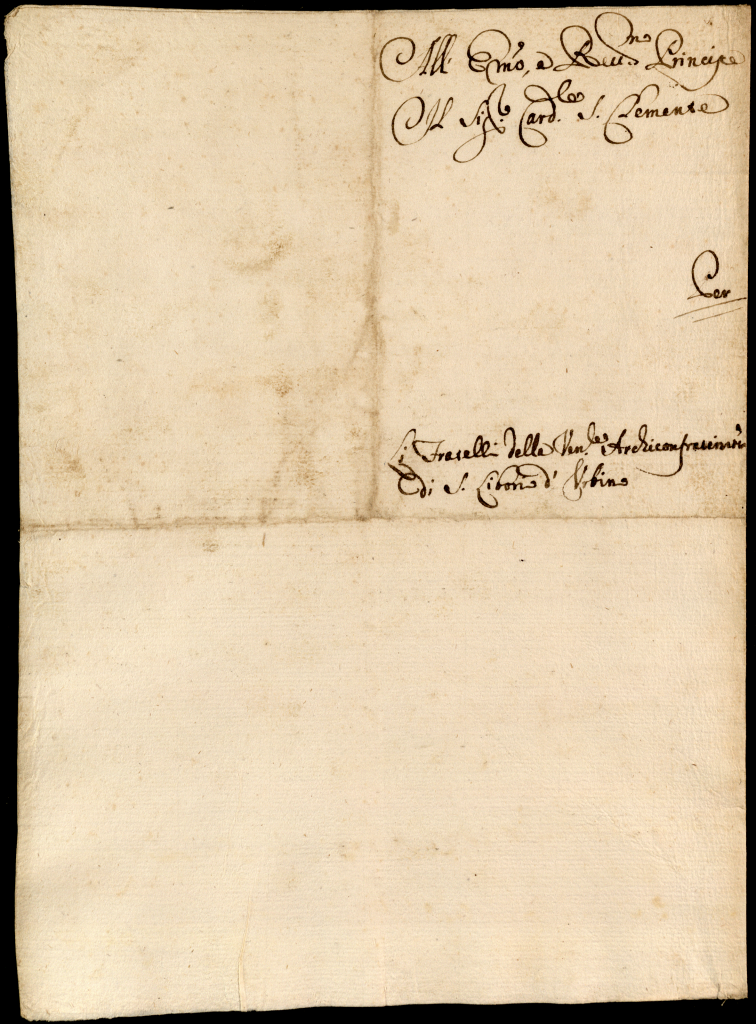 All' Emo, e Reu.mo Principe
Il Sig.r Card.le S. Clemente
Per
Li Fratelli della Ven.le Archiconfraternità
di S. Liborio d' Urbino